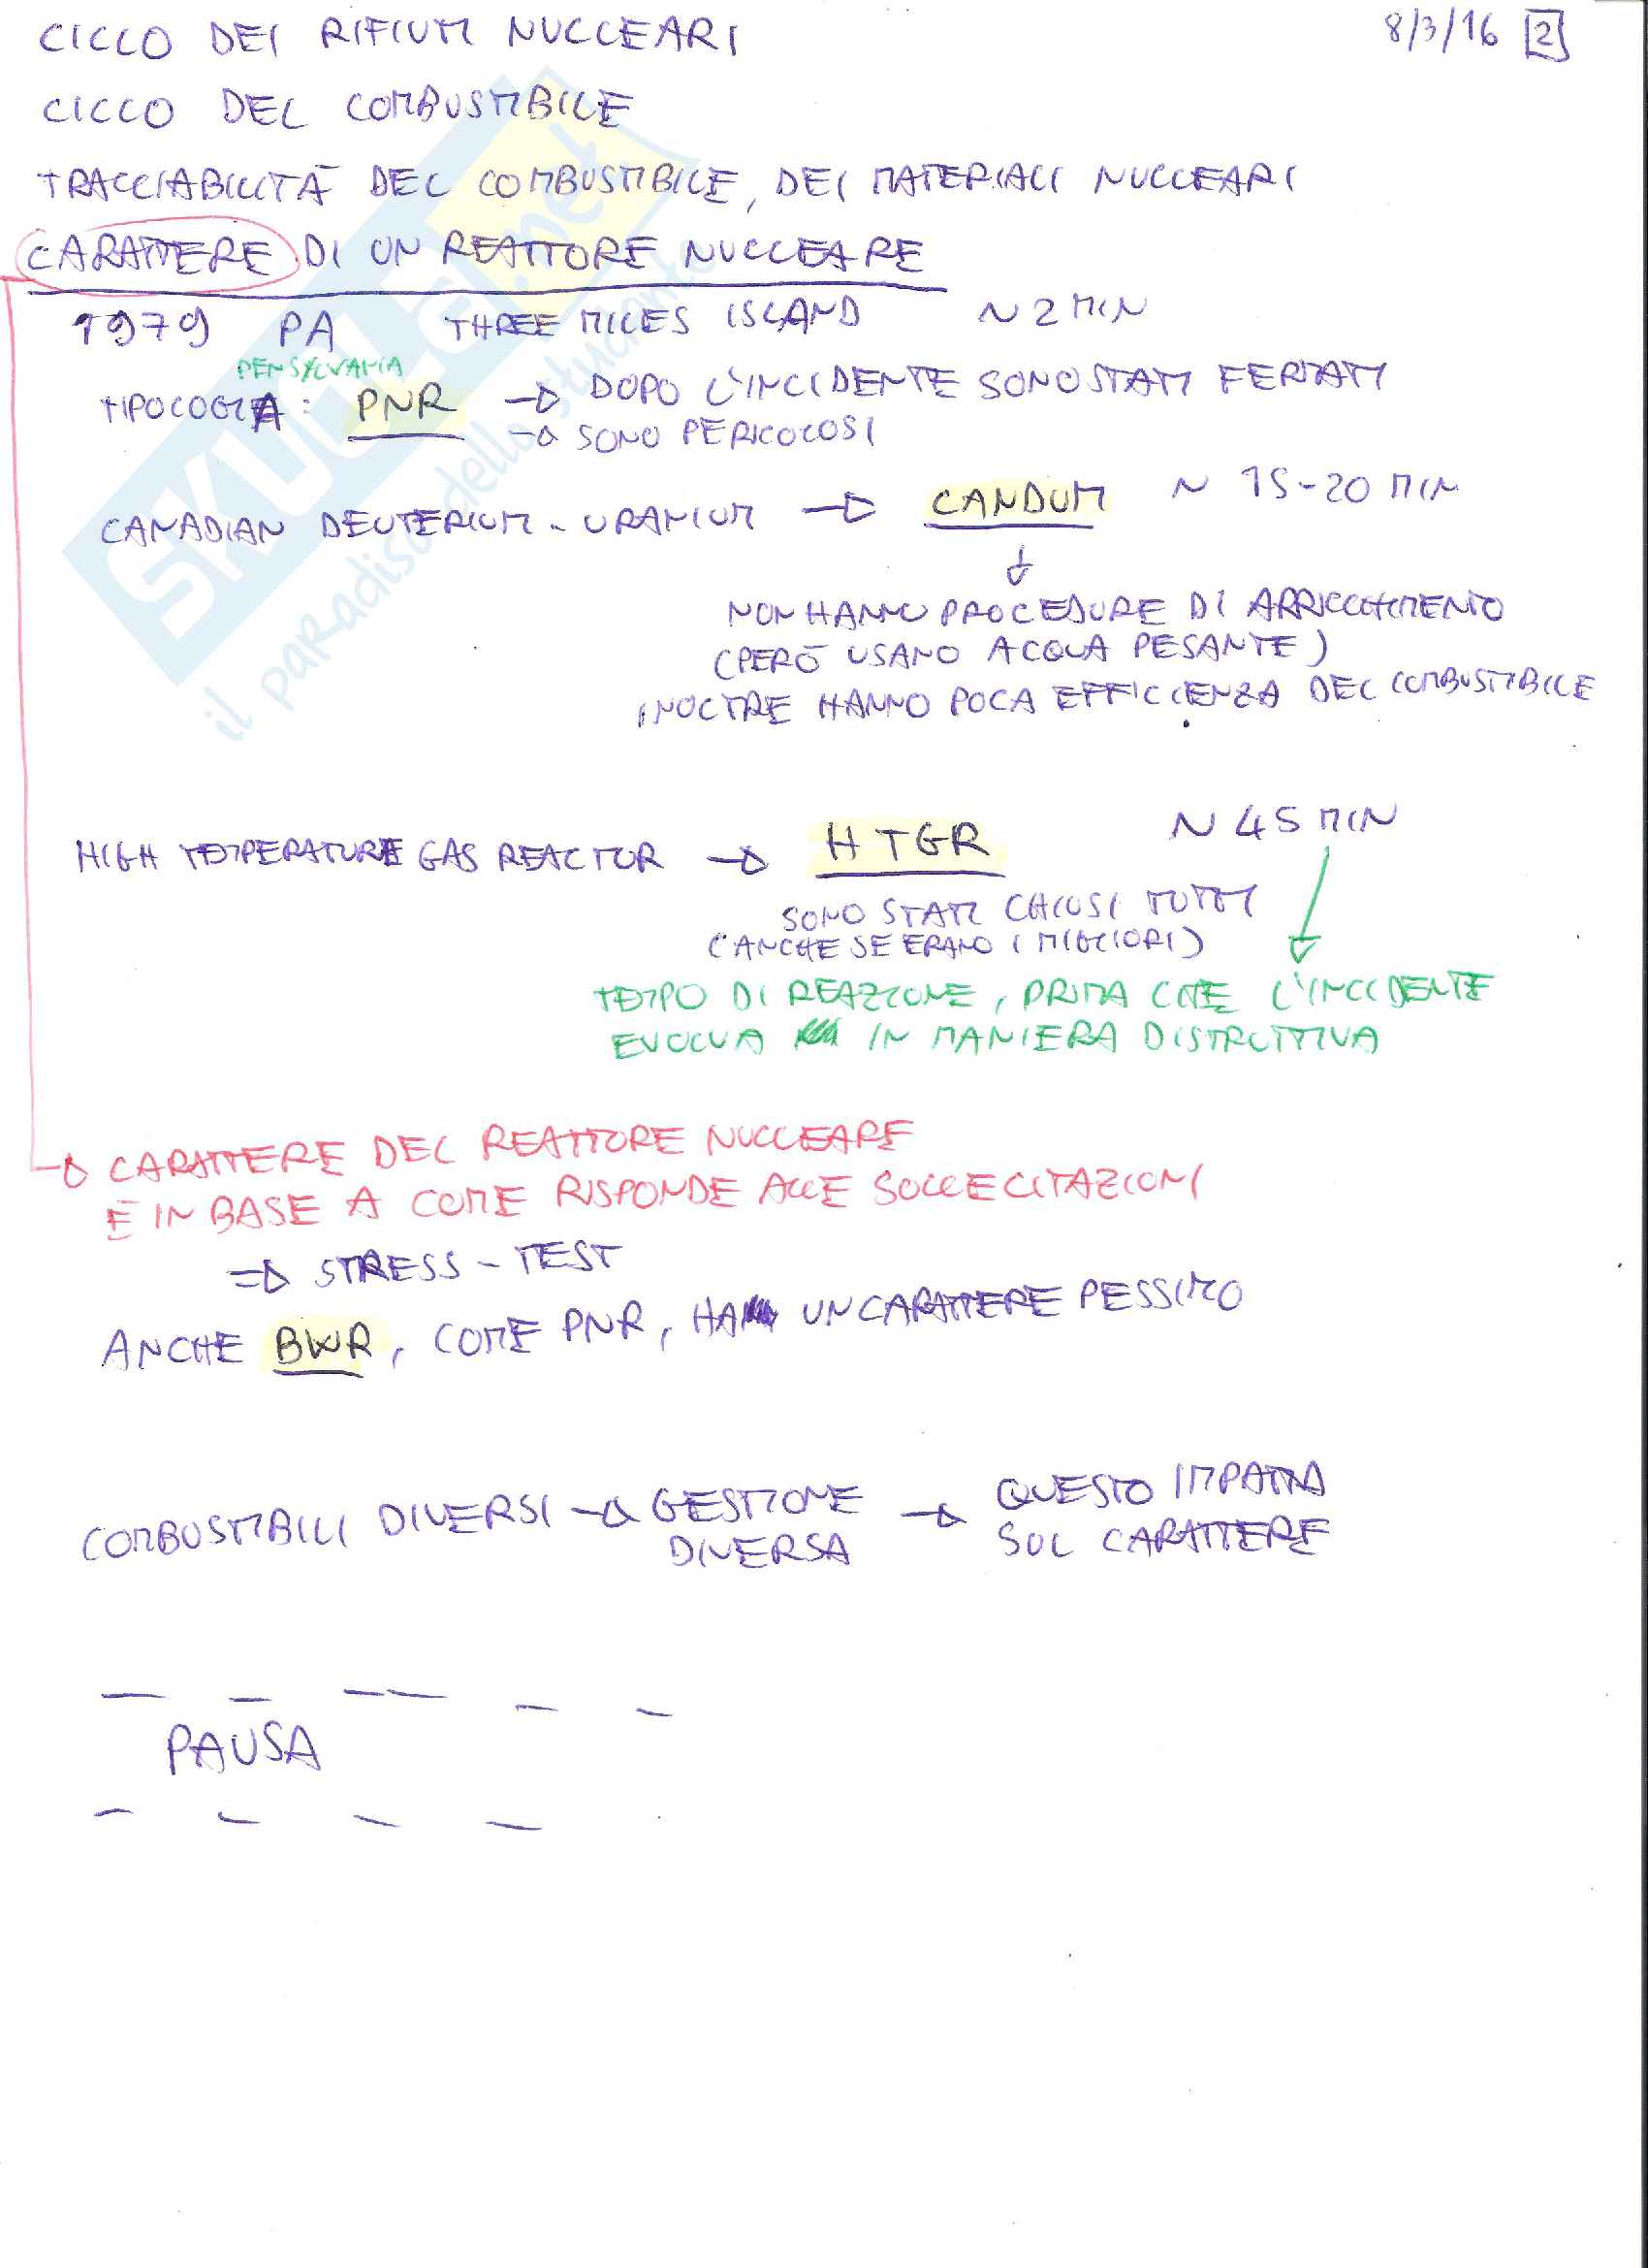 CICLO DEI RIFIUTI NUCLEARI 8/3/16 2
CICLO DEL COMBUSTIBILE
TRACCIABILITÀ DEL COMBUSTIBILE, DEI MATERIALI NUCLEARI
CARATTERE DI UN REATTORE NUCLEARE
1979 PA THREE MILES ISLAND ~ 2 MIN
PENSYLVANIA
TIPOLOGIA: PNR → DOPO L'INCIDENTE SONO STATI FERMATI
→ SONO PERICOLOSI
CANADIAN DEUTERIUM-URANIUM → CANDUM ~ 15-20 MIN
↓
NON HANNO PROCEDURE DI ARRICCHIMENTO
(PERÒ USANO ACQUA PESANTE)
INOLTRE HANNO POCA EFFICIENZA DEL COMBUSTIBILE
HIGH TEMPERATURE GAS REACTOR → HTGR ~ 45 MIN
SONO STATI CHIUSI TUTTI
(ANCHE SE ERANO I MIGLIORI)
TEMPO DI REAZIONE, PRIMA CHE L'INCIDENTE
EVOLVA IN MANIERA DISTRUTTIVA
→ CARATTERE DEL REATTORE NUCLEARE
È IN BASE A COME RISPONDE ALLE SOLLECITAZIONI
⇒ STRESS-TEST
ANCHE BWR, COME PNR, HA UN CARATTERE PESSIMO
COMBUSTIBILI DIVERSI → GESTIONE DIVERSA → QUESTO IMPATTA SUL CARATTERE
PAUSA
SKUOLA.net
il paradiso dello studente